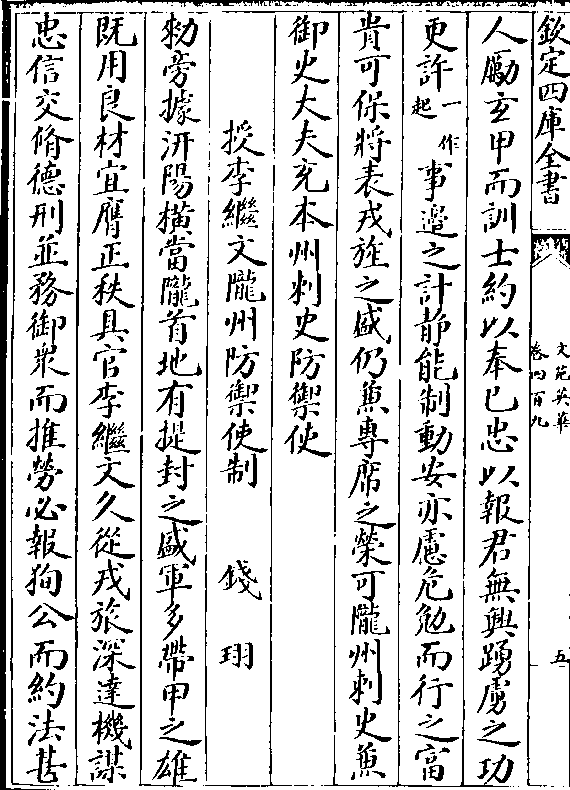 欽定四庫全書
文苑英華
卷四百九
五
人勵玄甲而訓士約以奉已忠以報君無興踴虜之功
更許一作起事邉之計静能制動安亦慮危勉而行之富
貴可保將表戎旌之盛仍兼專席之榮可隴州刺史兼
御史大夫充本州刺史防禦使
授李繼文隴州防禦使制　錢珝
勑旁據汧陽横當隴首地有提封之盛軍多帶甲之雄
既用良材宜膺正秩具官李繼文久從戎旅深達機謀
忠信交脩德刑並務御衆而推勞必報狥公而約法甚